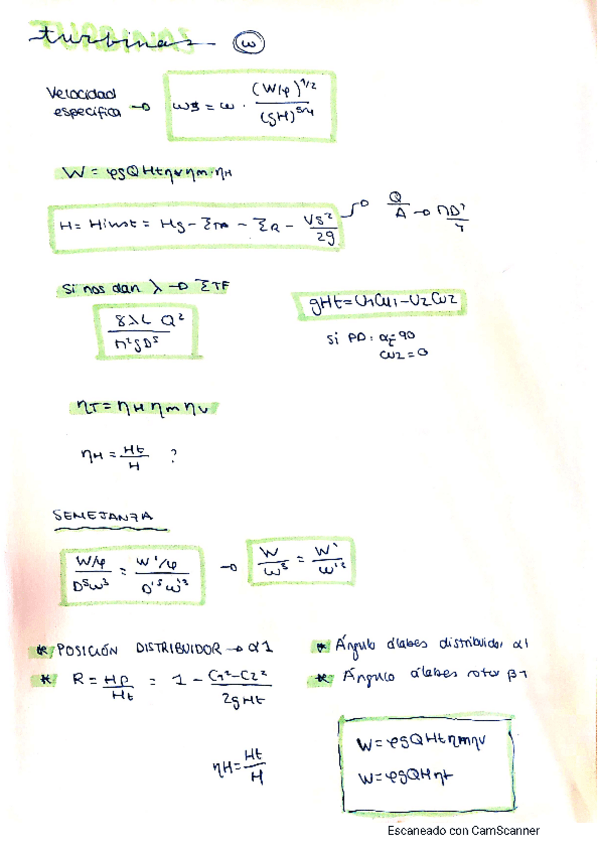 turbinas - (ω)
Velocidad específica → ωs = ω · (W/φ)^1/2 / (gH)^5/4
W = φgQHtηvηm·ηH
H = Hinst = Hg - ΣTA - ΣR - Vs²/2g → Q/A → ΠD²/4
Si nos dan λ → ΣTF
8λL Q² / Π²gD⁵
gHt = U1Cu1 - U2Cu2
Si PD: α2=90
Cu2 = 0
ηT = ηH ηm ηv
ηH = Ht/H ?
SEMEJANZA
W/φ / D⁵ω³ = W'/φ / D'⁵ω'³ → W/ω³ = W'/ω'³
* POSICIÓN DISTRIBUIDOR → α1
* Ángulo álabes distribuidor α1
* R = Hp/Ht = 1 - C1²-C2² / 2gHt
* Ángulo álabes rotor β1
ηH = Ht/H
W = φgQHtηmηv
W = φgQHηt
Escaneado con CamScanner